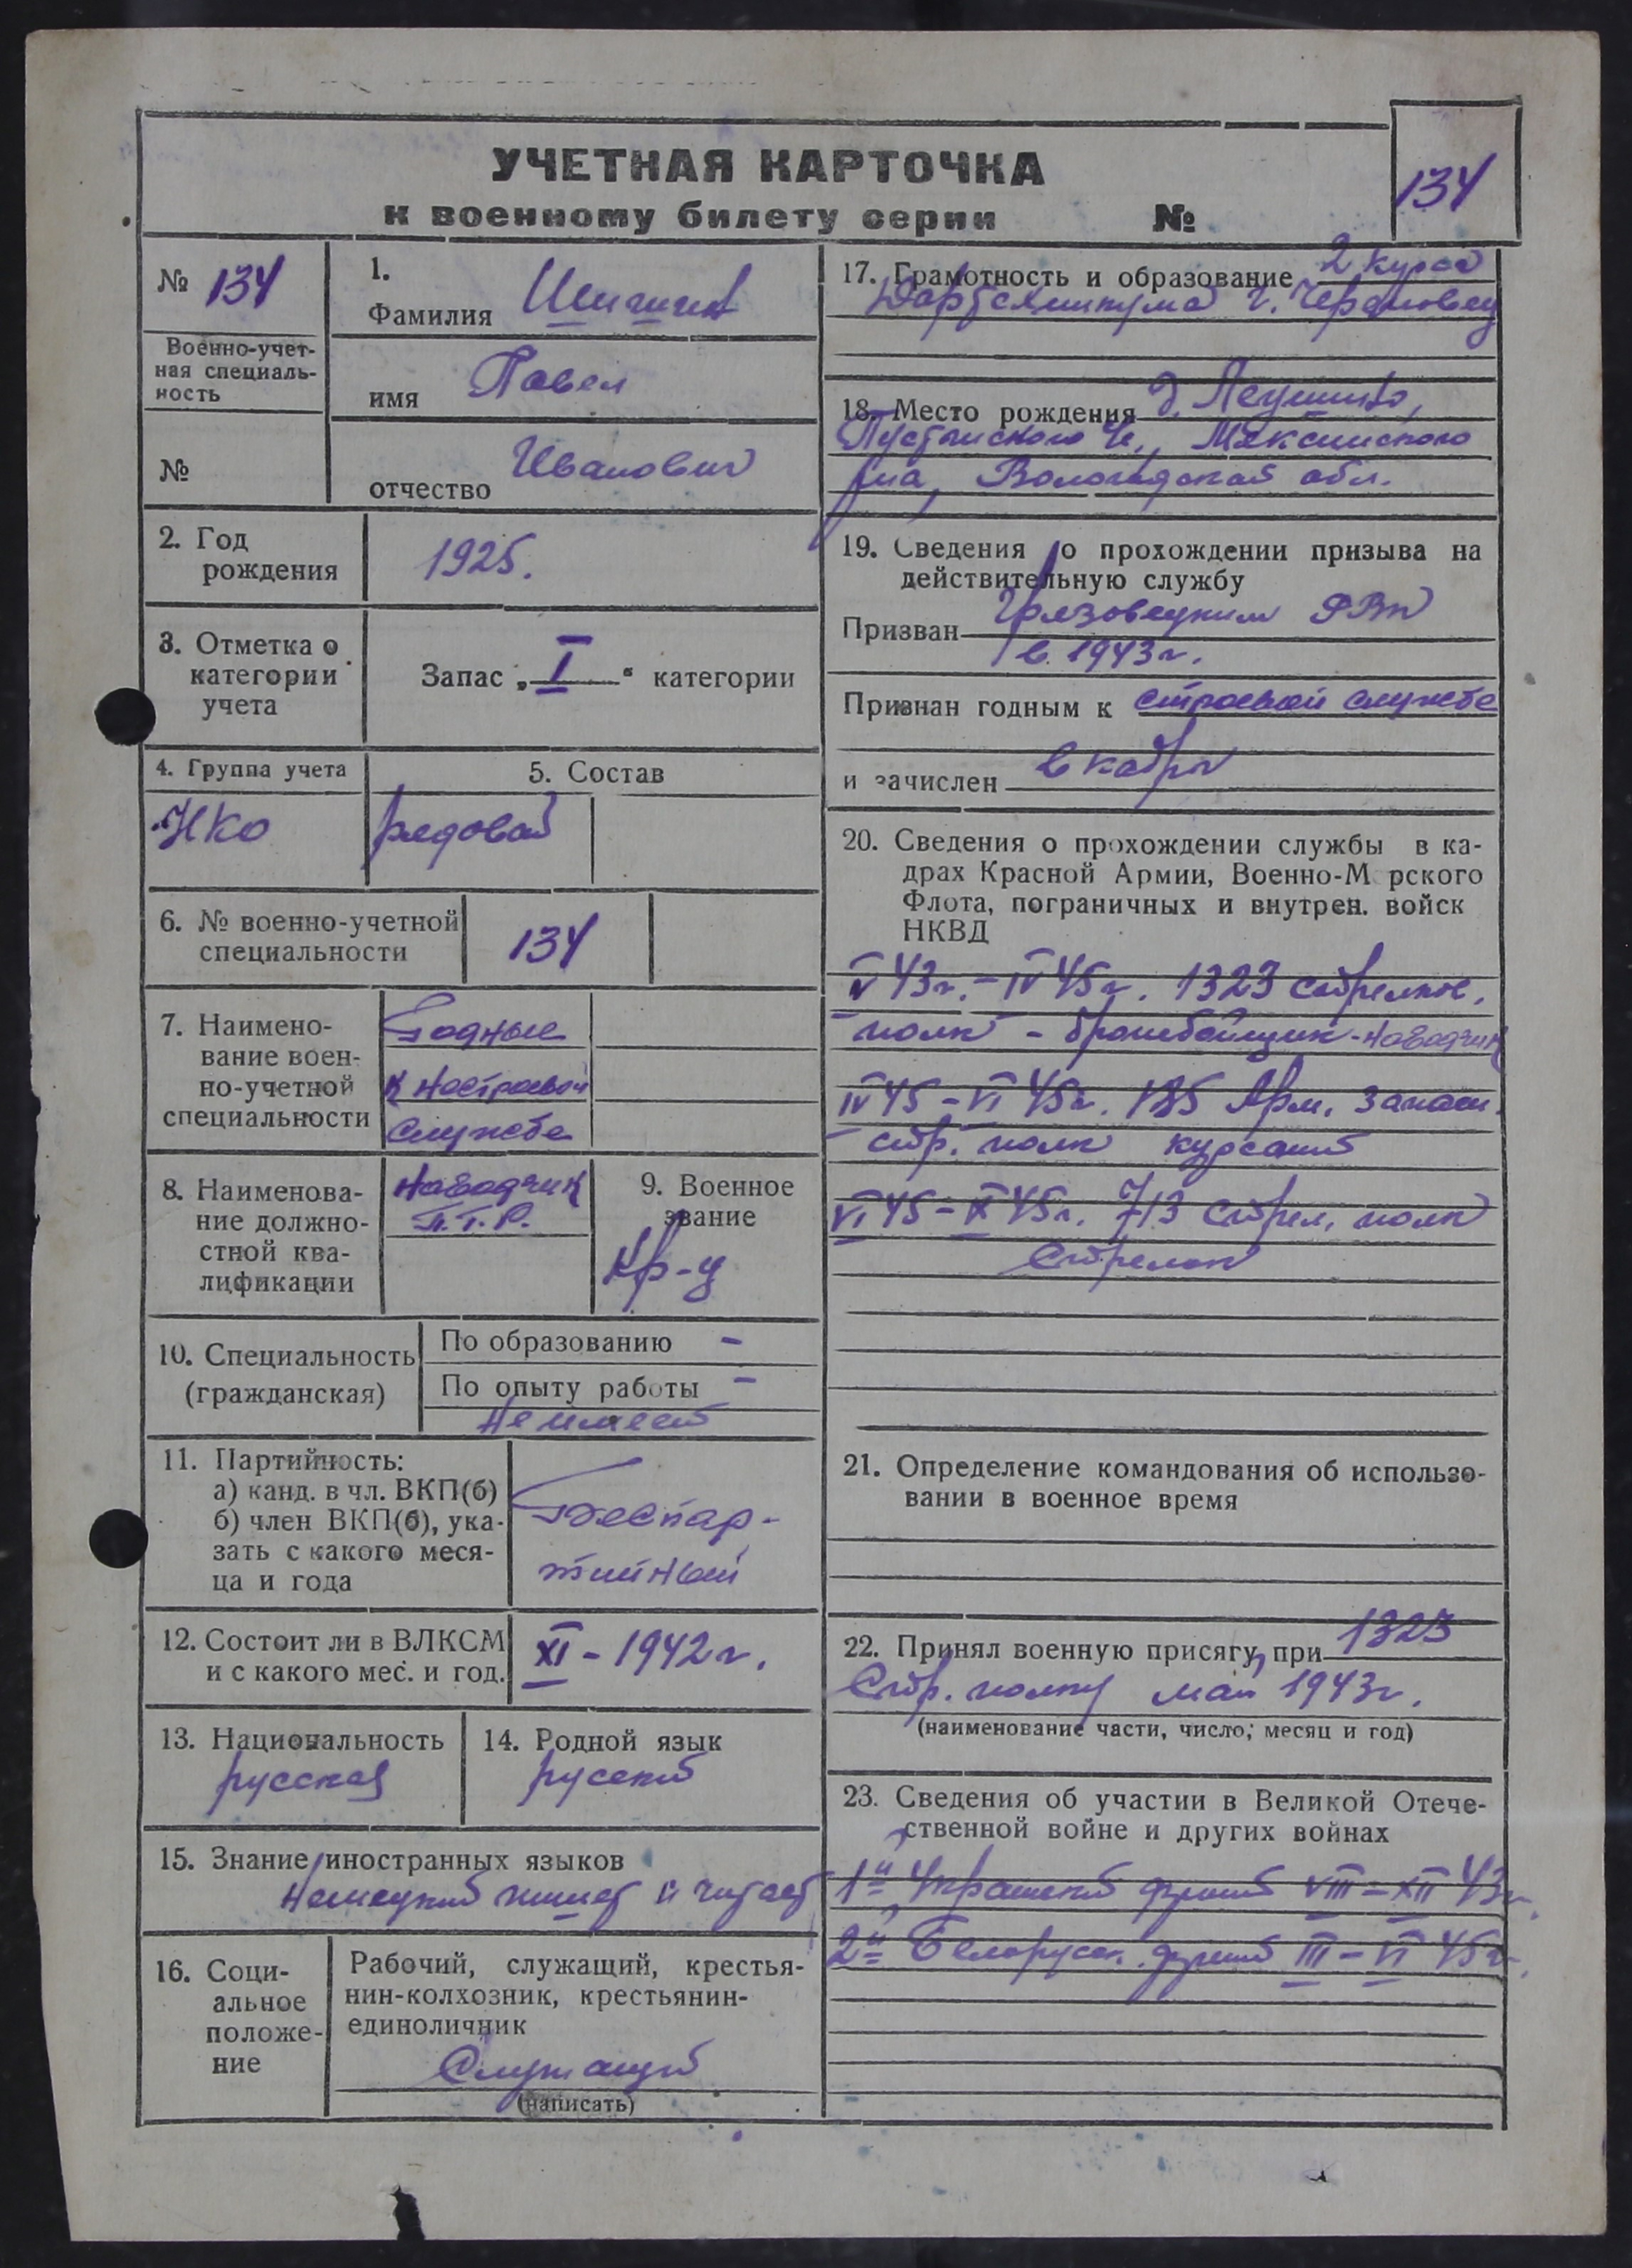 УЧЕТНАЯ КАРТОЧКА
к военному билету серии №
134
№ 134
Военно-учет-
ная специаль-
ность
№
1.
Фамилия
имя Павел
отчество Иванович
2. Год
рождения
1925.
3. Отметка о
категории
учета
Запас „I“ категории
4. Группа учета
НКО
5. Состав
рядовой
6. № военно-учетной
специальности
134
7. Наимено-
вание воен-
но-учетной
специальности
Годные
к нестроевой
службе
8. Наименова-
ние должно-
стной ква-
лификации
Наводчик
П.Т.Р.
9. Военное
звание
Кр-ц
10. Специальность
(гражданская)
По образованию -
По опыту работы -
не имеет
11. Партийность:
а) канд. в чл. ВКП(б)
б) член ВКП(б), ука-
зать с какого меся-
ца и года
Беспар-
тийный
12. Состоит ли в ВЛКСМ
и с какого мес. и год.
XI - 1942 г.
13. Национальность
русская
14. Родной язык
русский
15. Знание иностранных языков
Немецкий пишет и читает
16. Соци-
альное
положе-
ние
Рабочий, служащий, крестья-
нин-колхозник, крестьянин-
единоличник
Служащий
(написать)
17. Грамотность и образование 2 курса
г. Череповец
18. Место рождения д.
Мяксинского
р-на, Вологодской обл.
19. Сведения о прохождении призыва на
действительную службу
Призван Грязовецким РВК
в 1943 г.
Признан годным к строевой службе
и зачислен в кадры
20. Сведения о прохождении службы в ка-
драх Красной Армии, Военно-М рского
Флота, пограничных и внутрен. войск
НКВД
V 43 г. - IV 45 г. 1323 стрелков.
полк - бронебойщик - наводчик
IV 45 - VI 45 г. 185 Арм. запасн.
стр. полк курсант
VI 45 - 45 г. 713 стрел. полк
Стрелок
21. Определение командования об использо-
вании в военное время
22. Принял военную присягу, при 1323
Стр. полку май 1943 г.
(наименование части, число, месяц и год)
23. Сведения об участии в Великой Отече-
ственной войне и других войнах
1й Украинский фронт VIII - XII 43 г.
2й Белорусск. фронт III - VI 45 г.